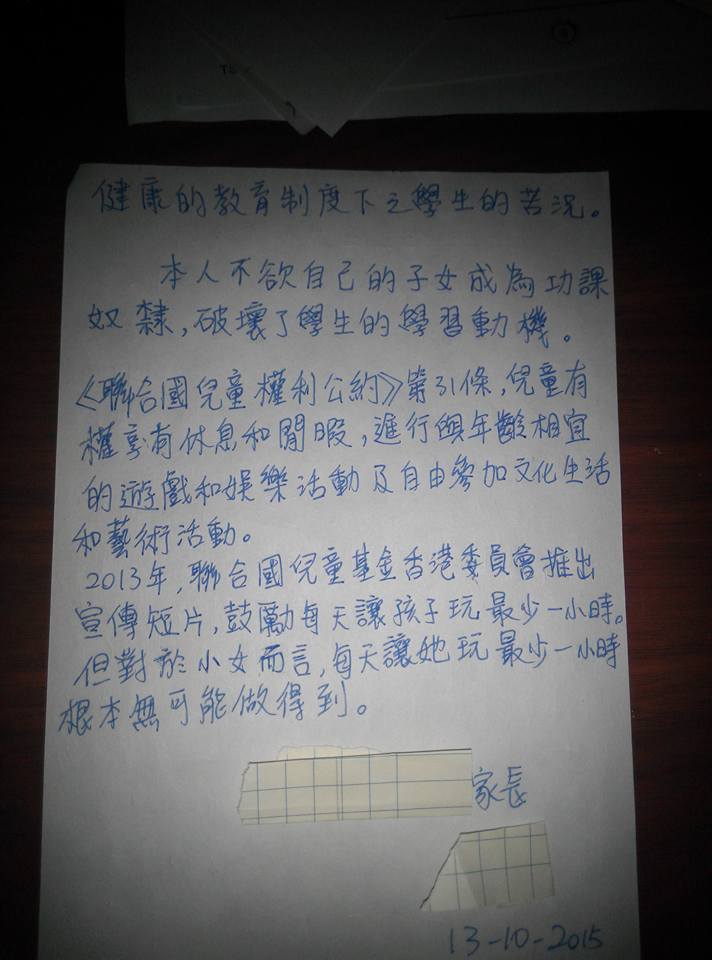 健康的教育制度下之學生的苦況。
本人不欲自己的子女成為功課
奴隸，破壞了學生的學習動機。
《聯合國兒童權利公約》第31條，兒童有
權享有休息和閒暇，進行與年齡相宜
的遊戲和娛樂活動及自由參加文化生活
和藝術活動。
2013年，聯合國兒童基金香港委員會推出
宣傳短片，鼓勵每天讓孩子玩最少一小時。
但對於小女而言，每天讓她玩最少一小時
根本無可能做得到。
家長
13-10-2015